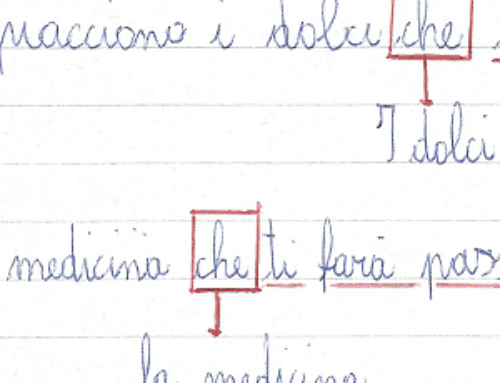 piacciono i dolci che
I dolci
medicina che ti farà pas
la medicina